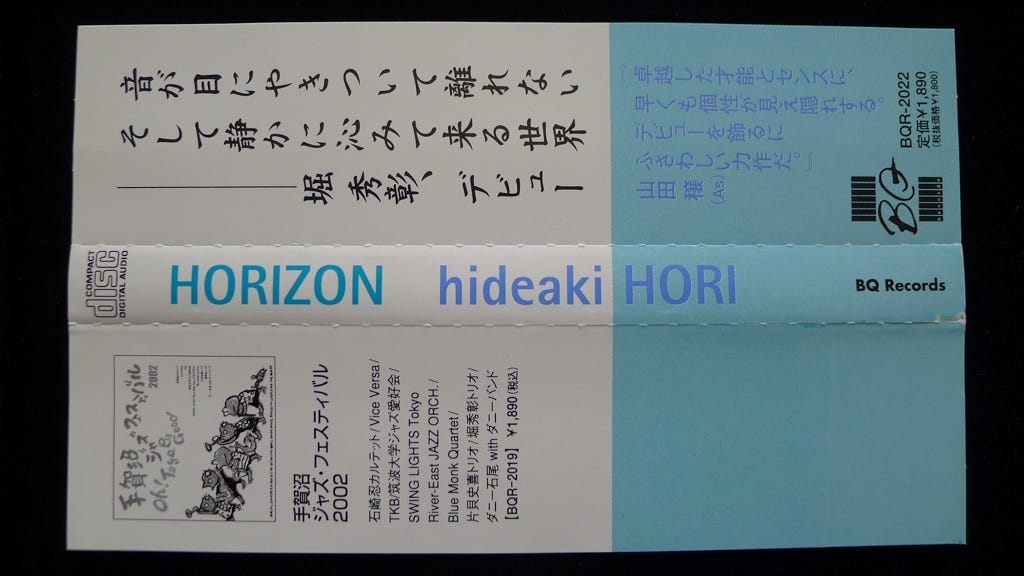 音が目にやきついて離れない
そして静かに沁みて来る世界
堀 秀彰、デビュー
「卓越した才能とセンスに、
早くも個性が見え隠れする。
デビューを飾るに
ふさわしい力作だ。」
山田 穣(As)
BQR-2022
定価¥1,890
(税抜価格¥1,800)
BQ
COMPACT
disc
DIGITAL AUDIO
HORIZON hideaki HORI
BQ Records
手賀沼
ジャズ・フェスティバル
2002
Oh! Togei Good
手賀沼
ジャズ・フェスティバル
2002
石崎忍カルテット/Vice Versa/
TKB/筑波大学ジャズ愛好会/
SWING LIGHTS Tokyo
River-East JAZZ ORCH./
Blue Monk Quartet/
片貝史喜トリオ/堀秀彰トリオ/
ダニー石尾 with ダニーバンド
【BQR-2019】 ¥1,890(税込)